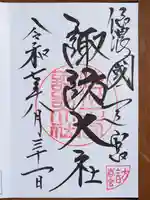 信濃國一之宮
諏訪大社
令和七年月三十一日